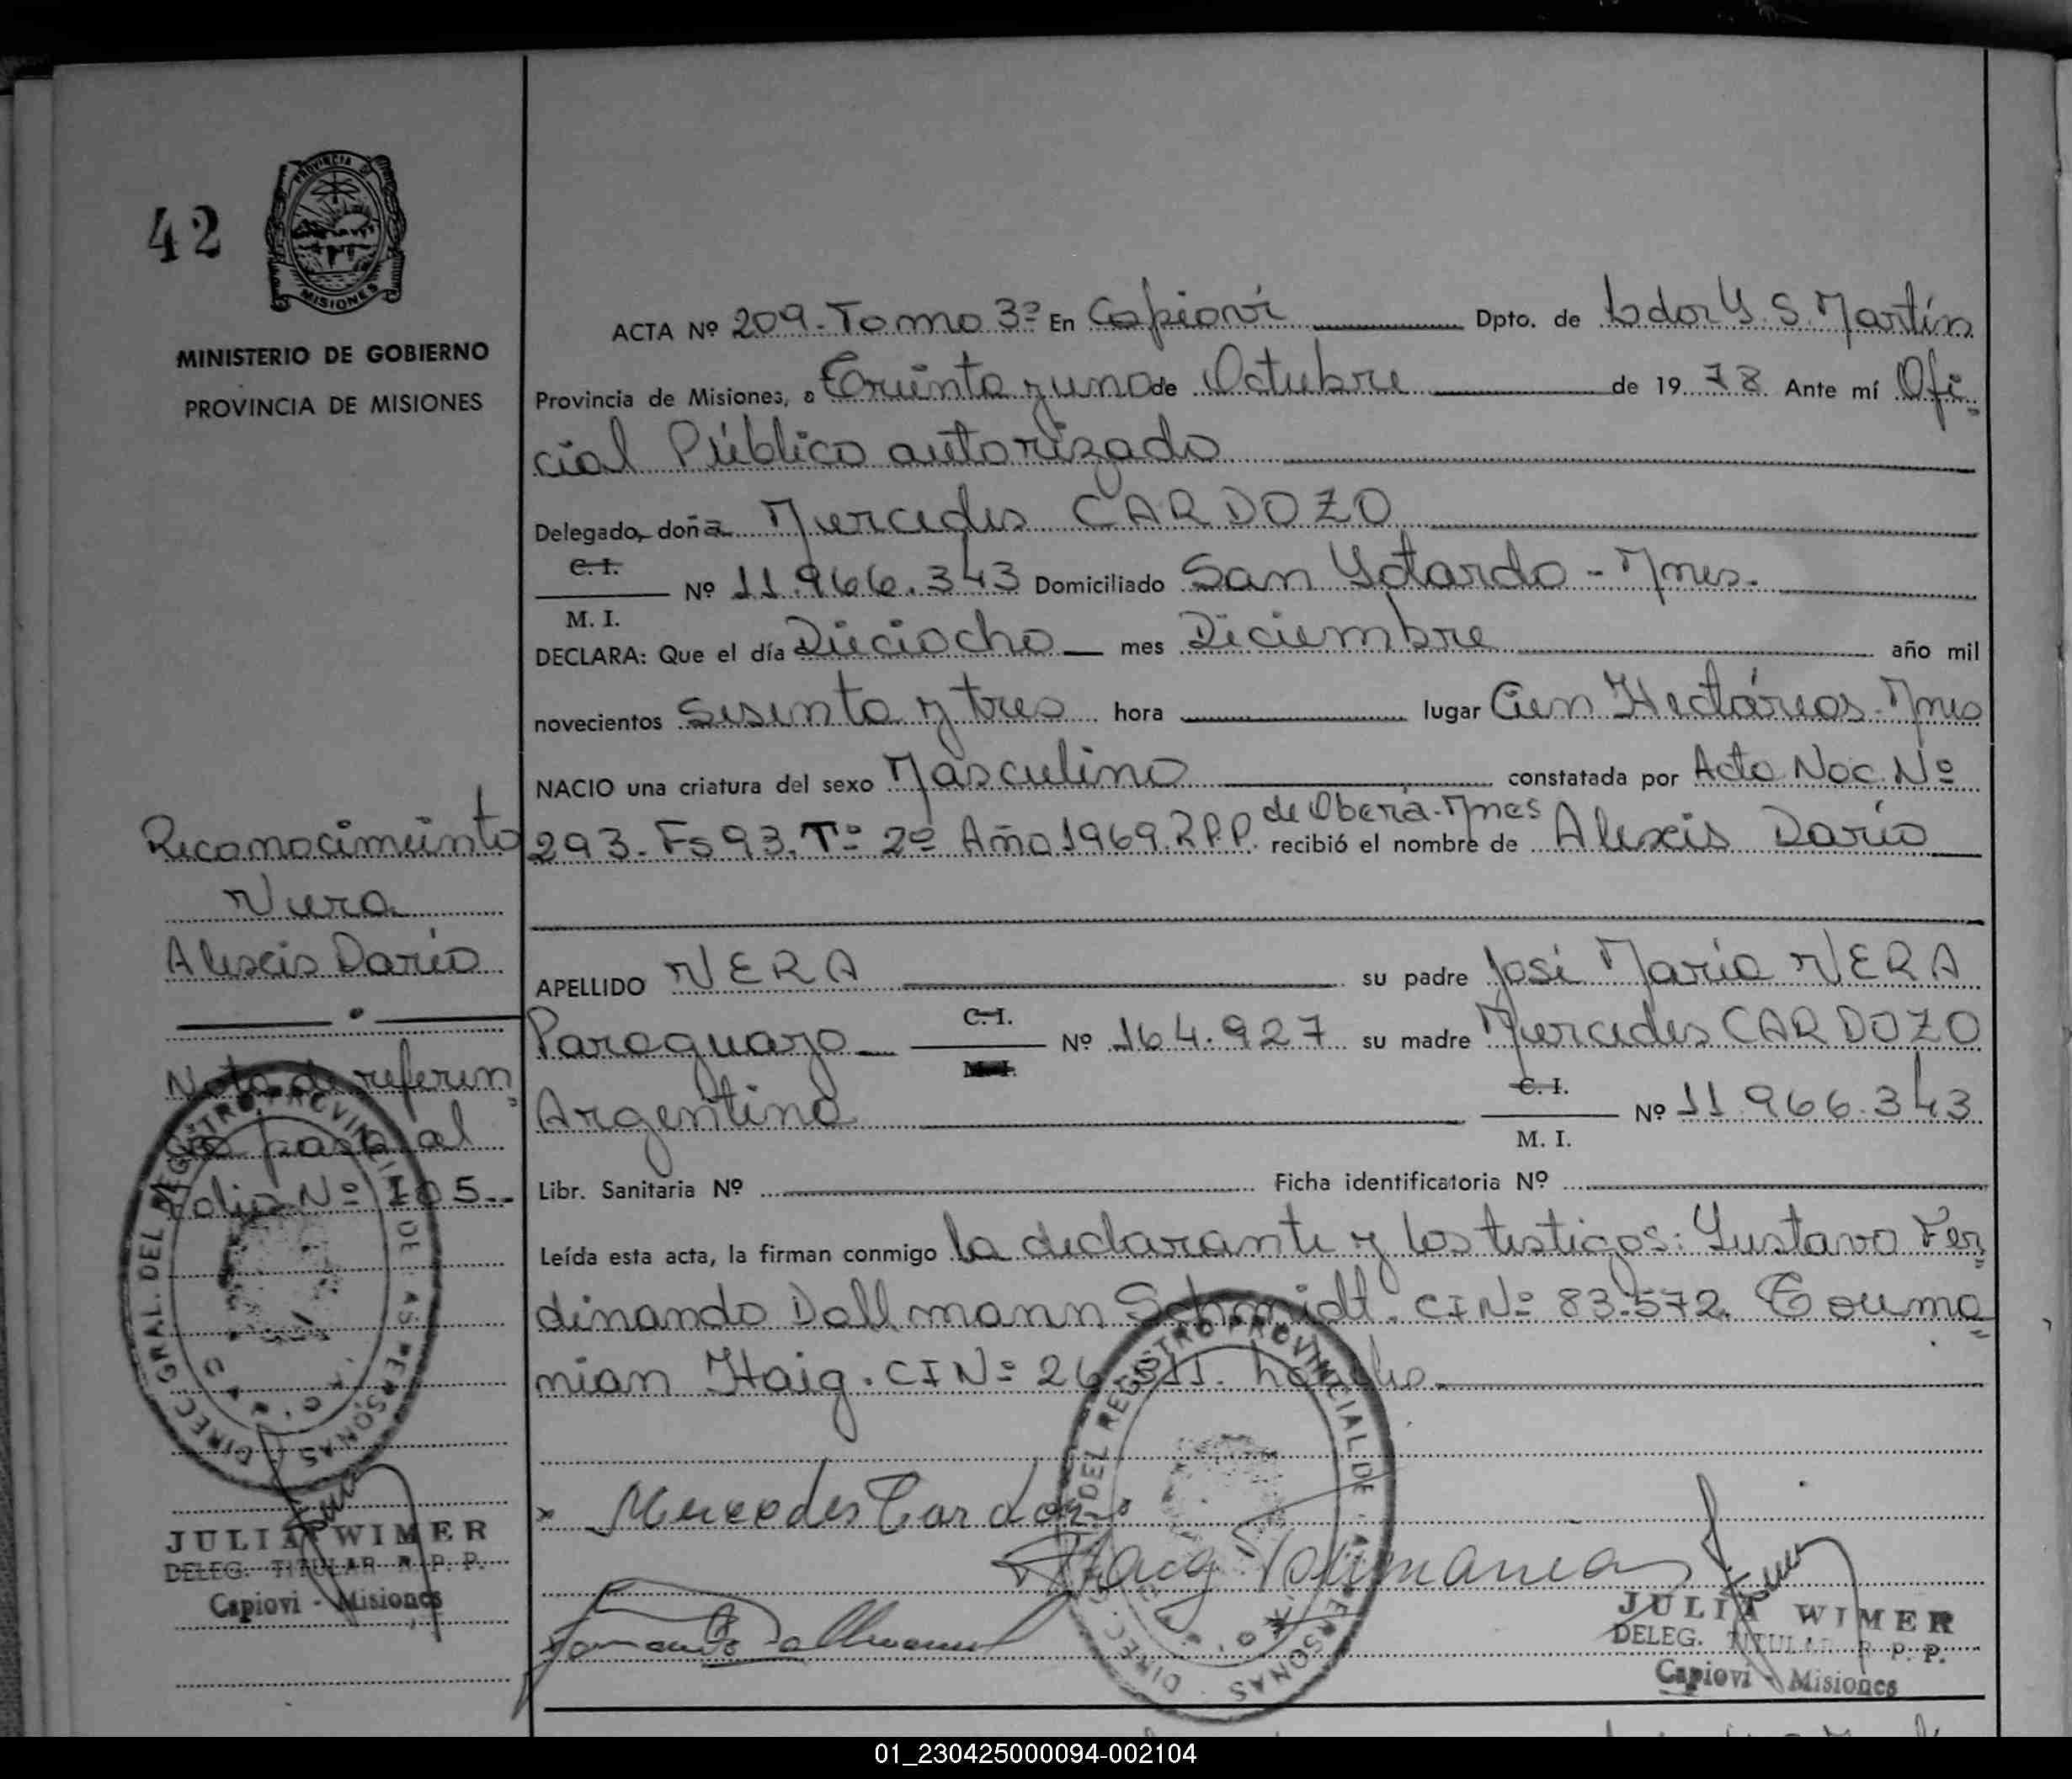 42
PROVINCIA DE
MISIONES
MINISTERIO DE GOBIERNO
PROVINCIA DE MISIONES
ACTA Nº 209. Tomo 3º En Capioví Dpto. de Ldor G. S. Martín
Provincia de Misiones, a Treinta y uno de Octubre de 19 78 Ante mí Ofi-
cial Público autorizado
Delegado, doña Mercedes CARDOZO
C. I.
Nº 11.966.343 Domiciliado San Gotardo - Mnes.
M. I.
DECLARA: Que el día Dieciocho mes Diciembre año mil
novecientos Sesenta y tres hora lugar Cien Hectáreas. Mnes
NACIO una criatura del sexo Masculino constatada por Acta Nac. Nº
de Oberá-Mnes
293. Fs 93. Tº 2º Año 1969. R.P.P. recibió el nombre de Alexis Darío
APELLIDO VERA su padre José María VERA
Paraguayo C. I. Nº 164.927 su madre Mercedes CARDOZO
M. I.
Argentina C. I. Nº 11.966.343
M. I.
Libr. Sanitaria Nº Ficha identificatoria Nº
Leída esta acta, la firman conmigo la declarante y los testigos: Gustavo Fer-
dinando Dallmann Schmidt. CI Nº 83.572. Touma-
nian Haig. CI Nº
Reconocimiento
Vera
Alexis Darío
Nota de referen
cia pasa al
Folio Nº 105.
DIREC. GRAL. DEL REGISTRO PROVINCIAL DE LAS PERSONAS
JULIA WIMER
DELEG. TITULAR R. P. P.
Capiovi - Misiones
Mercedes Cardozo
DIREC. GRAL. DEL REGISTRO PROVINCIAL DE LAS PERSONAS
Haig Toumanian
Dallmann
JULIA WIMER
DELEG. TITULAR R. P. P.
Capiovi - Misiones
01_230425000094-002104